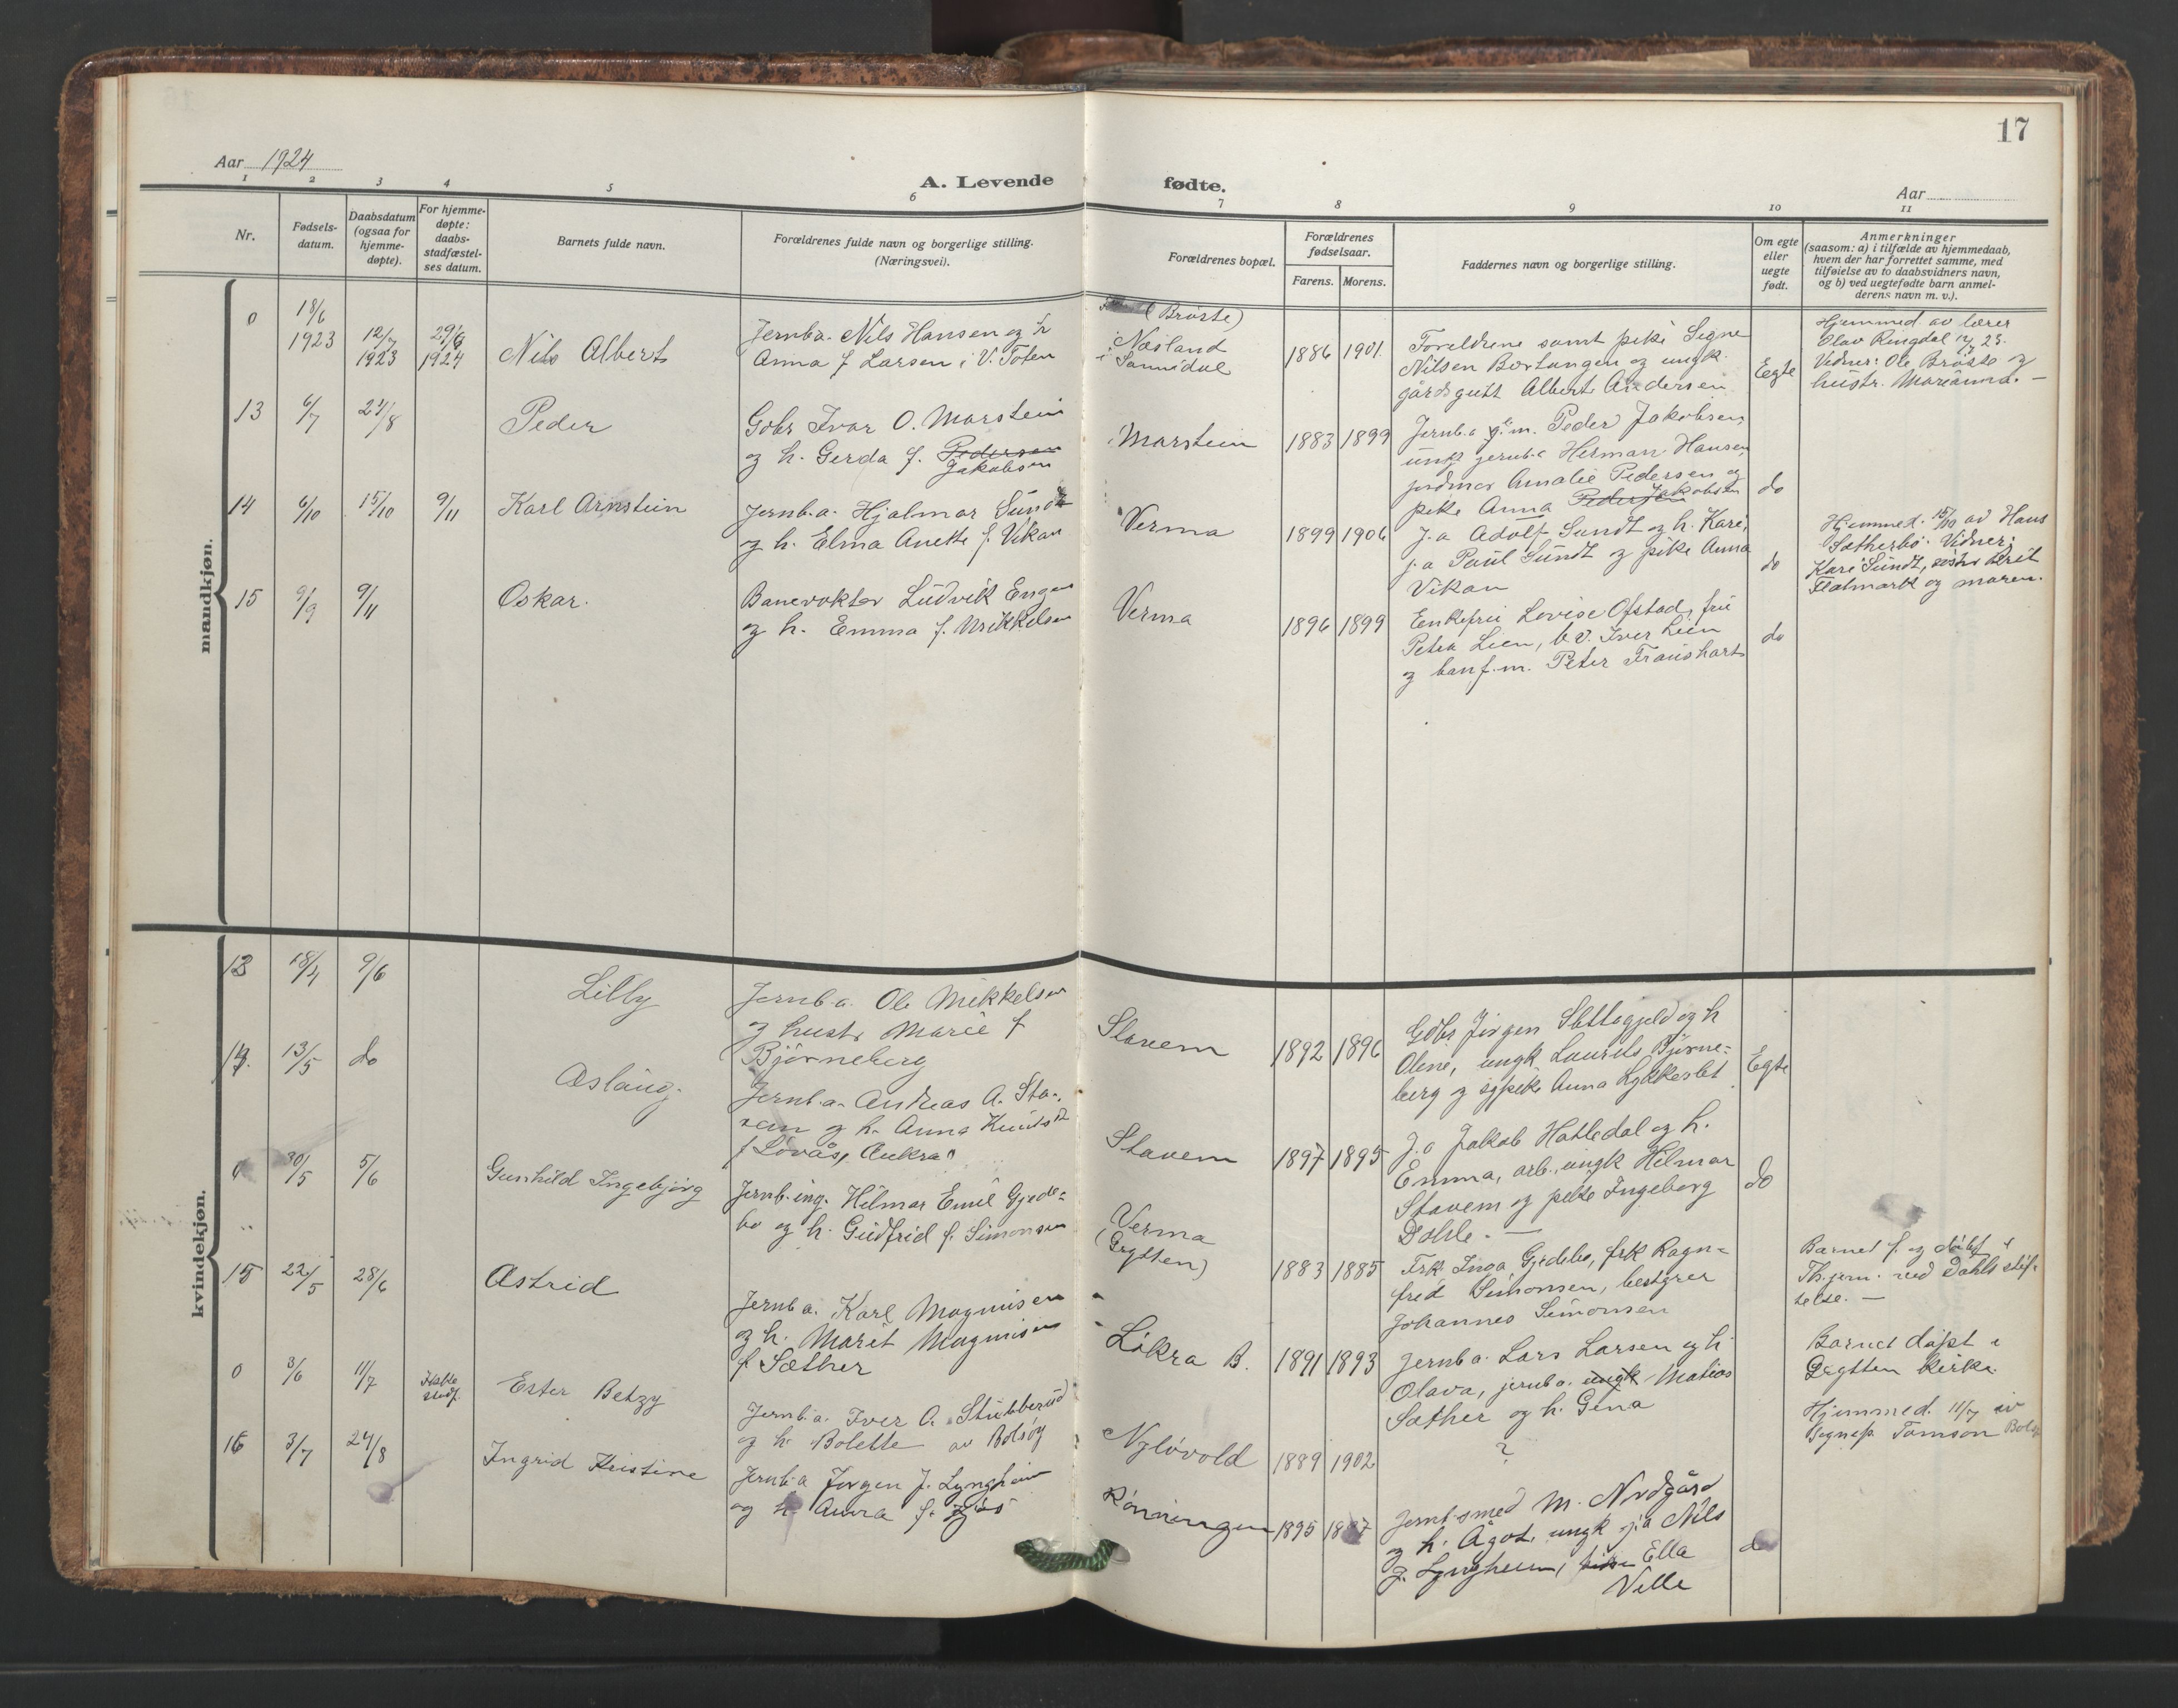 17
Aar 1924
A. Levende fødte.
Aar
1 2 3 4 5 6 7 8 9 10 11
Nr.
Fødsels-
datum.
Daabsdatum
(ogsaa for
hjemme-
døpte).
For hjemme-
døpte:
daabs-
stadfæstel-
ses datum.
Barnets fulde navn.
Forældrenes fulde navn og borgerlige stilling.
(Næringsvei).
Forældrenes bopæl.
Forældrenes
fødselsaar.
Farens. Morens.
Faddernes navn og borgerlige stilling.
Om egte
eller
uegte
født.
Anmerkninger
(saasom: a) i tilfælde av hjemmedaab,
hvem der har forrettet samme, med
tilføielse av to daabsvidners navn,
og b) ved uegtefødte barn anmel-
derens navn m. v.).
mandkjøn.
0
18/6
1923
12/7
1923
29/6
1924
Nils Albert
Jernb.a. Nils Hansen og h
Anna f Larsen i V. Toten
(Brøste)
Næsland
i Sannidal
1886 1901
Foreldrene samt pike Signe
Nilsen Bortangen og ungk.
gårdsgutt Albert Andersen
Egte
Hjemmed. av lærer
Olav Ringdal 12/7 23.
Vidner: Ole Brøste og
hustr. Marianna. —
13
6/7
24/8
Peder
Gbr Ivar O. Marstein
og h. Gerda f. Pedersen
Jakobsen
Marstein
1883 1899
Jernb.a g.m. Peder Jakobsen,
ungk jernb.a Herman Hansen,
jordmor Amalie Pedersen og
pike Anna Pedersen Jakobsen
do
14
6/10
15/10
9/11
Karl Arnstein
Jernb.a. Hjalmar Sundt
og h. Elma Anette f. Vikan
Verma
1899 1906
J.a Adolf Sundt og h. Kari,
j.a Paul Sundt og pike Anna
Vikan
do
Hjemmed. 15/10 av Hans
Sætherbø. Vidner:
Kari Sundt, søster Berit
Flatmark og moren.
15
9/9
9/11
Oskar.
Banevokter Ludvik Engen
og h. Emma f. Mikkelsen
Verma
1896 1899
Enkefrue Lovise Ofstad, frue
Petra Lien, b.v. Iver Lien
og banf.m. Peter
do
kvindekjøn.
13
18/4
9/6
Lilly
Jernb.a. Ole Mikkelsen
og hustr Marie f
Bjørneberg
Stavem
1892 1896
Gbr Jørgen Slettagjeld og h
Oline, ungk Laurits Bjørne-
berg og sypike Anna Lykkeslet
Egte
14.
13/5
do
Aslaug.
Jernb.a. Andreas A. Sta-
vem og h. Anna Knutsdt
f Løvås, Aukra
Stavem
1897 1895
J.a Jakob Hatledal og h.
Emma, arb., ungk Hilmar
Stavem og pike Ingeborg
Dahle. —
do
0
30/5
5/6
Gunhild Ingebjørg
Jernb.ing. Hilmar Emil Gjede-
bo og h. Gudfrid f. Simonsen
Verma
(Grytten)
1883 1885
Frk. Inga Gjedebo, frk Ragn-
frid Simonsen, bestyrer
Johannes Simonsen
Barnet f. og døbt i
Th.jem. ved Dahls stif-
telse. —
15
22/5
28/6
Astrid
Jernb a. Karl Magnusen
og h. Marit Magnusen
f Sæther
Løkra B.
1891 1893
Jernb a. Lars Larsen og h
Olava, jernb a. ungk Matias
Sæther og h. Gina
Barnet døpt i
Grytten kirke.
0
3/6
11/7
Ikke
stadf.
Ester Betzy
Jernb.a. Iver O. Stubberud
og h. Bolette av Bolsøy
Nyløvold
1889 1902
?
Hjemmed. 11/7 av
Sognep. Tomson Bols
16
3/7
24/8
Ingrid Kristine
Jernb.a Jørgen J. Lyngheim
og h. Anna f.
Rønningen
1895 1887
Jernb.smed M. Nordgård
og h. Ågot, ungk j.a Nils
J. Lyngheim, Ella
Velle
do